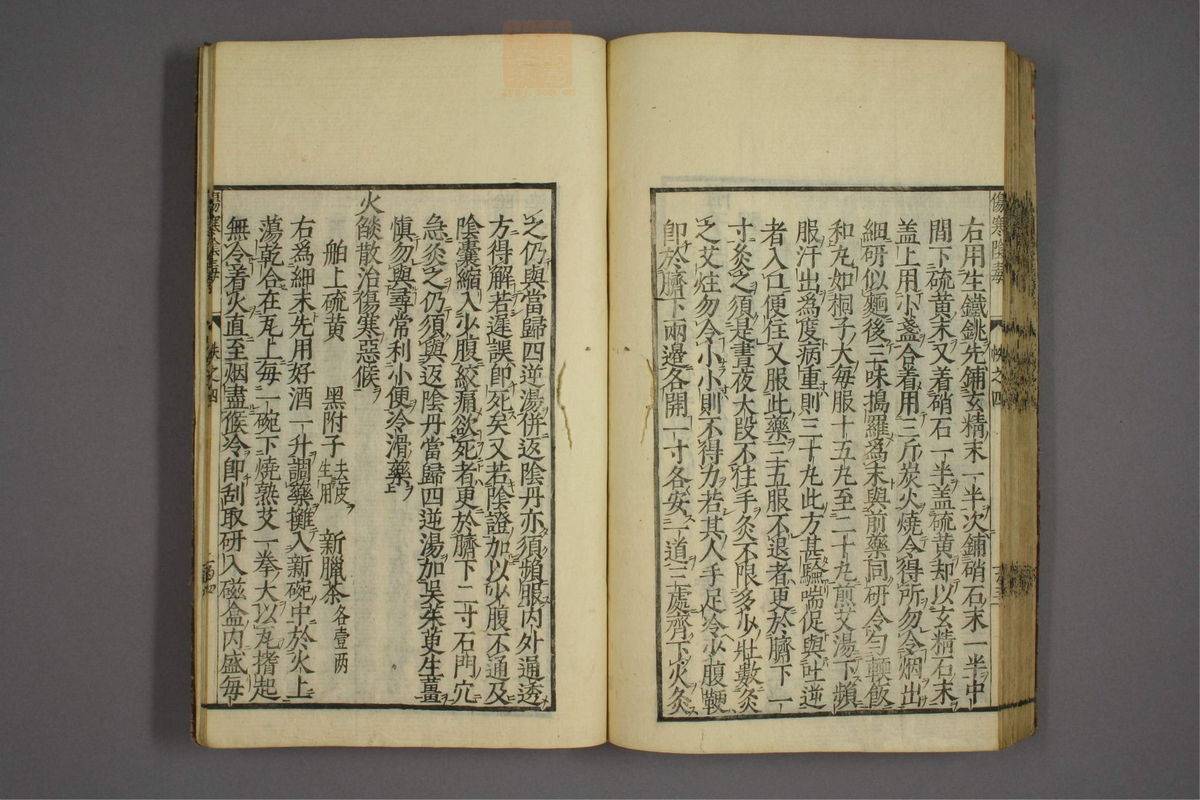 傷寒陰毒
帙之四
右用生鐵銚先鋪玄精末一半次鋪硝石末一半中
間下硫黄末又着硝石一半盖硫黄却以玄精石末
盖上用小盞合着用三斤炭火燒令得所勿令烟出
細研似麵後三味搗羅爲末與前藥同研令勻軟飯
和丸如桐子大每服十五丸至二十丸煎艾湯下頻
服汗出爲度病重則三十丸此方甚驗喘促與吐逆
者入口便住又服此藥三五服不退者更於臍下一
寸灸之須是晝夜大段不住手灸不限多少壯數灸
之艾炷勿令小小則不得力若其人手足冷少腹鞕
即於臍下兩邊各開一寸各安一道三處齊下火灸
之仍與當歸四逆湯併返陰丹亦須頻服内外逼透
方得解若遲誤即死矣又若陰證加以少腹不通及
陰囊縮入少腹絞痛欲死者更於臍下二寸石門穴
急灸之仍須與返陰丹當歸四逆湯加吳茱萸生薑
慎勿與尋常利小便冷滑藥
火焰散治傷寒惡候
舶上硫黄 黑附子去皮生用 新臘茶各壹两
右爲細末先用好酒一升調藥攤入新碗中於火上
蕩乾合在瓦上每一碗下燒熟艾一拳大以瓦揩起
無令着火直至烟盡候冷即刮取研入磁盒内盛每
傷寒陰毒
帙之四